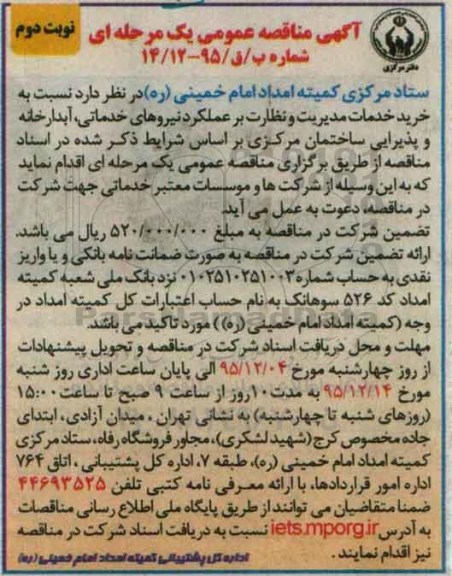 نوبت دوم
آگهی مناقصه عمومی یک مرحله ای
شماره ب/ق/۹۵-۱۴/۱۲
دفتر مرکزی
ستاد مرکزی کمیته امداد امام خمینی (ره) در نظر دارد نسبت به
خرید خدمات مدیریت و نظارت بر عملکرد نیروهای خدماتی، آبدارخانه
و پذیرایی ساختمان مرکزی بر اساس شرایط ذکر شده در اسناد
مناقصه از طریق برگزاری مناقصه عمومی یک مرحله ای اقدام نماید
که به این وسیله از شرکت ها و موسسات معتبر خدماتی جهت شرکت
در مناقصه، دعوت به عمل می آید.
تضمین شرکت در مناقصه به مبلغ ۵۲۰/۰۰۰/۰۰۰ ریال می باشد.
ارائه تضمین شرکت در مناقصه به صورت ضمانت نامه بانکی و یا واریز
نقدی به حساب شماره ۰۱۰۲۵۱۰۲۵۱۰۰۳ نزد بانک ملی شعبه کمیته
امداد کد ۵۲۶ سوهانک به نام حساب اعتبارات کل کمیته امداد در
وجه (کمیته امداد امام خمینی (ره)) مورد تاکید می باشد.
مهلت و محل دریافت اسناد شرکت در مناقصه و تحویل پیشنهادات
از روز چهارشنبه مورخ ۹۵/۱۲/۰۴ الی پایان ساعت اداری روز شنبه
مورخ ۹۵/۱۲/۱۴ به مدت ۱۰ روز از ساعت ۹ صبح تا ساعت ۱۵:۰۰
(روزهای شنبه تا چهارشنبه) به نشانی تهران ، میدان آزادی، ابتدای
جاده مخصوص کرج (شهید لشکری)، مجاور فروشگاه رفاه، ستاد مرکزی
کمیته امداد امام خمینی (ره)، طبقه ۷، اداره کل پشتیبانی ، اتاق ۷۶۴
اداره امور قراردادها، با ارائه معرفی نامه کتبی تلفن ۴۴۶۹۳۵۲۵
ضمنا متقاضیان می توانند از طریق پایگاه ملی اطلاع رسانی مناقصات
به آدرس iets.mporg.ir نسبت به دریافت اسناد شرکت در مناقصه
نیز اقدام نمایند.
اداره کل پشتیبانی کمیته امداد امام خمینی (ره)